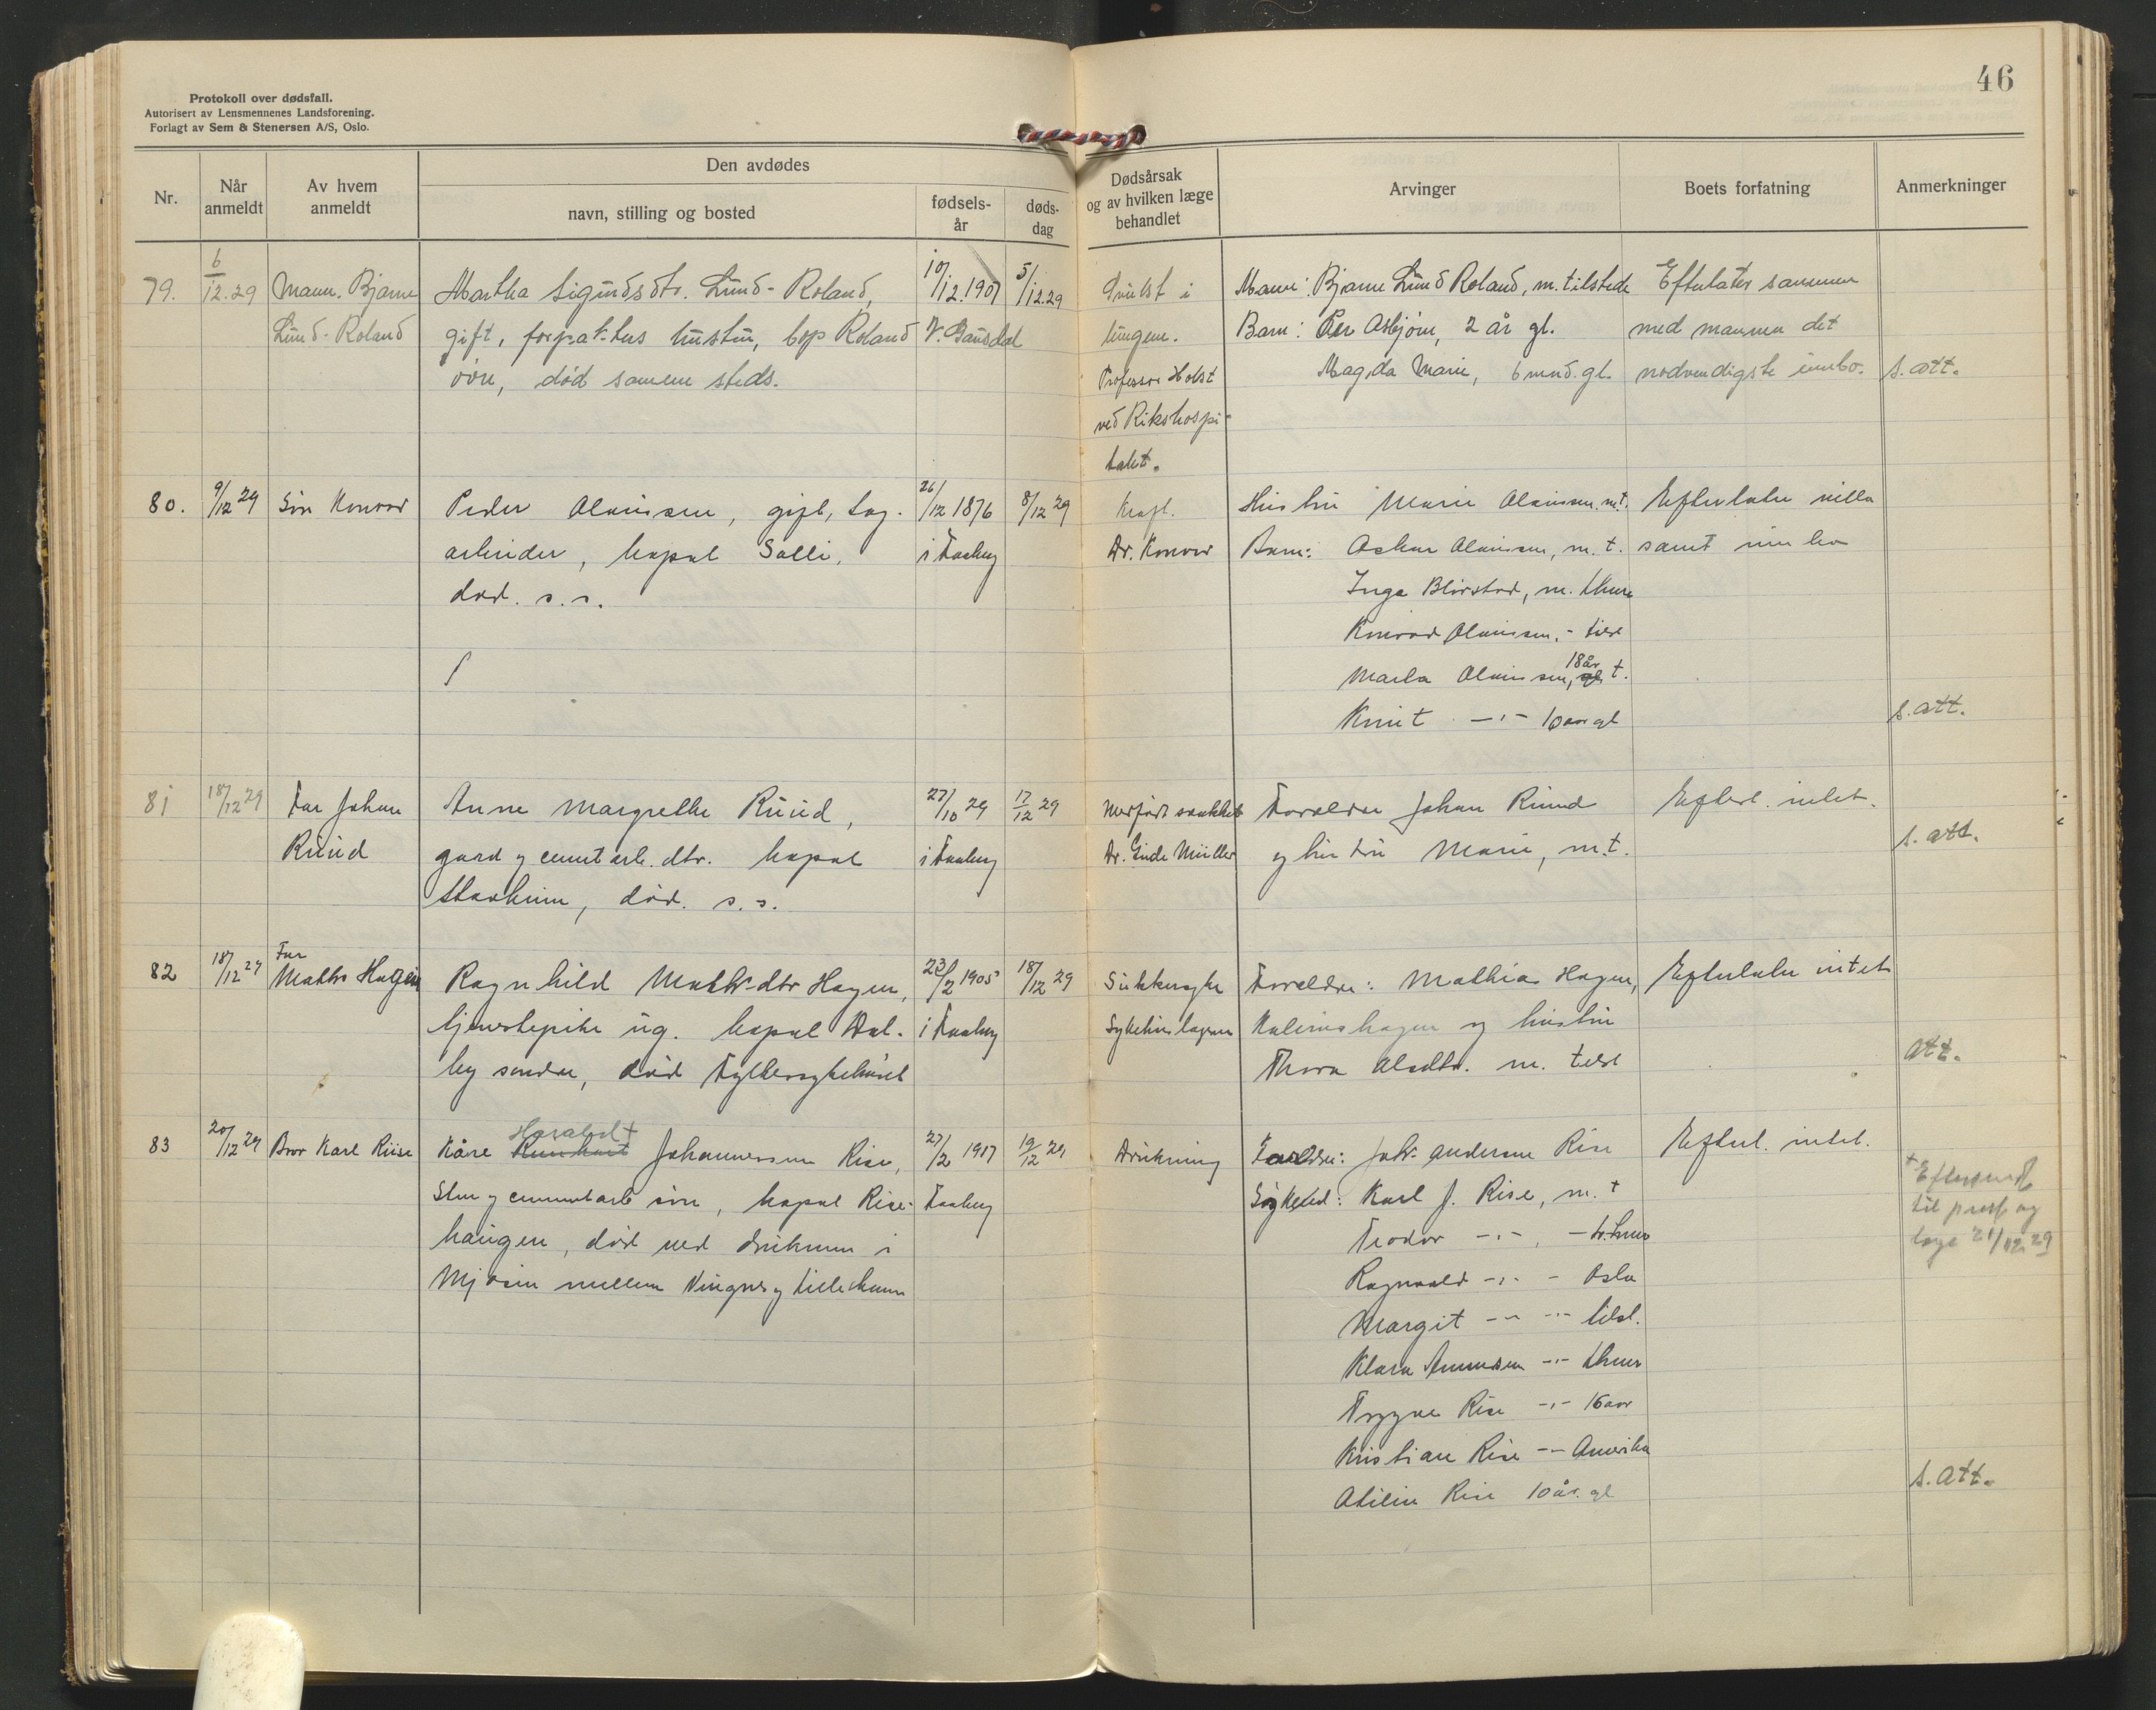 46
Protokoll over dødsfall.
Autorisert av Lensmennenes Landsforening.
Forlagt av Sem & Stenersen A/S, Oslo.
Nr.
Når anmeldt
Av hvem anmeldt
Den avdødes
navn, stilling og bosted
fødsels-år
døds-dag
Dødsårsak
og av hvilken læge
behandlet
Arvinger
Boets forfatning
Anmerkninger
79. 6/12.29 Mann. Bjarne
Lund-Roland
Martha Sigurdsdtr. Lund-Roland,
gift, forpakters hustru, bop Roland
øvre, død samme steds.
10/12.1907
V. Gausdal
5/12.29
Svulst i
lungen.
Professor Holst
ved Rikshospi-
talet.
Mann: Bjarne Lund Roland, m. tilstede
Barn: Per Asbjørn, 2 år gl.
Magda Marie, 6 mnd. gl.
Efterlater sammen
med mannen det
nødvendigste innbo.
s. att.
80. 9/12 29 Søn Konrad
Peder Olaussen, gift, sag-
arbeider, bopæl Salli,
død. s. s.
26/12 1876
i Faaberg
8/12 29
Kræft.
Dr. Konow
Hustru Marie Olaussen. m.t.
Barn: Oskar Olaussen, m. t.
Inga Blørstad, m. Lhmr
Konrad Olaussen, - tilst
Marta Olaussen, 18 år t.
Knut -"- 10 aar gl
Efterlater villa
samt innbo
s. att.
81 18/12 29 Far Johan
Ruud
Anne Margrethe Ruud,
gård og cement arb. dtr. bopæl
Storheim, død. s. s.
27/10 29
i Faaberg
17/12 29
Medfødt svakhet
Dr. Gude Müller
Foreldre Johan Ruud
og hustru Marie, m.t.
Efterl. intet.
s. att.
82 18/12 29 Far
Mathis Hagen
Ragnhild Mathisdtr Hagen,
tjenestepike ug. bopæl Dal-
by søndre, død Fylkessykehuset
23/2 1905
i Faaberg
18/12 29
Sukkersyke
Sykehuslægen
Foreldre: Mathias Hagen,
og hustru
Thora Olsdtr. m. tilst
Efterlater intet
att.
83 20/12 29 Bror Karl Riise
Haraldx
Kåre Johannessen Rise,
Sten og cementarb søn, bopæl Rise-
haugen, død ved drukning i
Mjøsen mellem Vingnes og Lillehamm
27/2 1917
Faaberg
19/12 29
Drukning
Foreldre: Johs Andersen Rise
Søsken: Karl J. Rise, m. t
Teodor -"-, - Lhmr
Ragnvald -"- - Oslo
Margit -"- -"- tilst.
Klara Amundsen -"- Lhmr
Trygve Rise -"- 16 aar
Kristian Rise -"- Amerika
Otilie Rise 10 år. gl
Efterl. intet.
x Eftersendt
til prest og
læge 21/12 29
s. att.